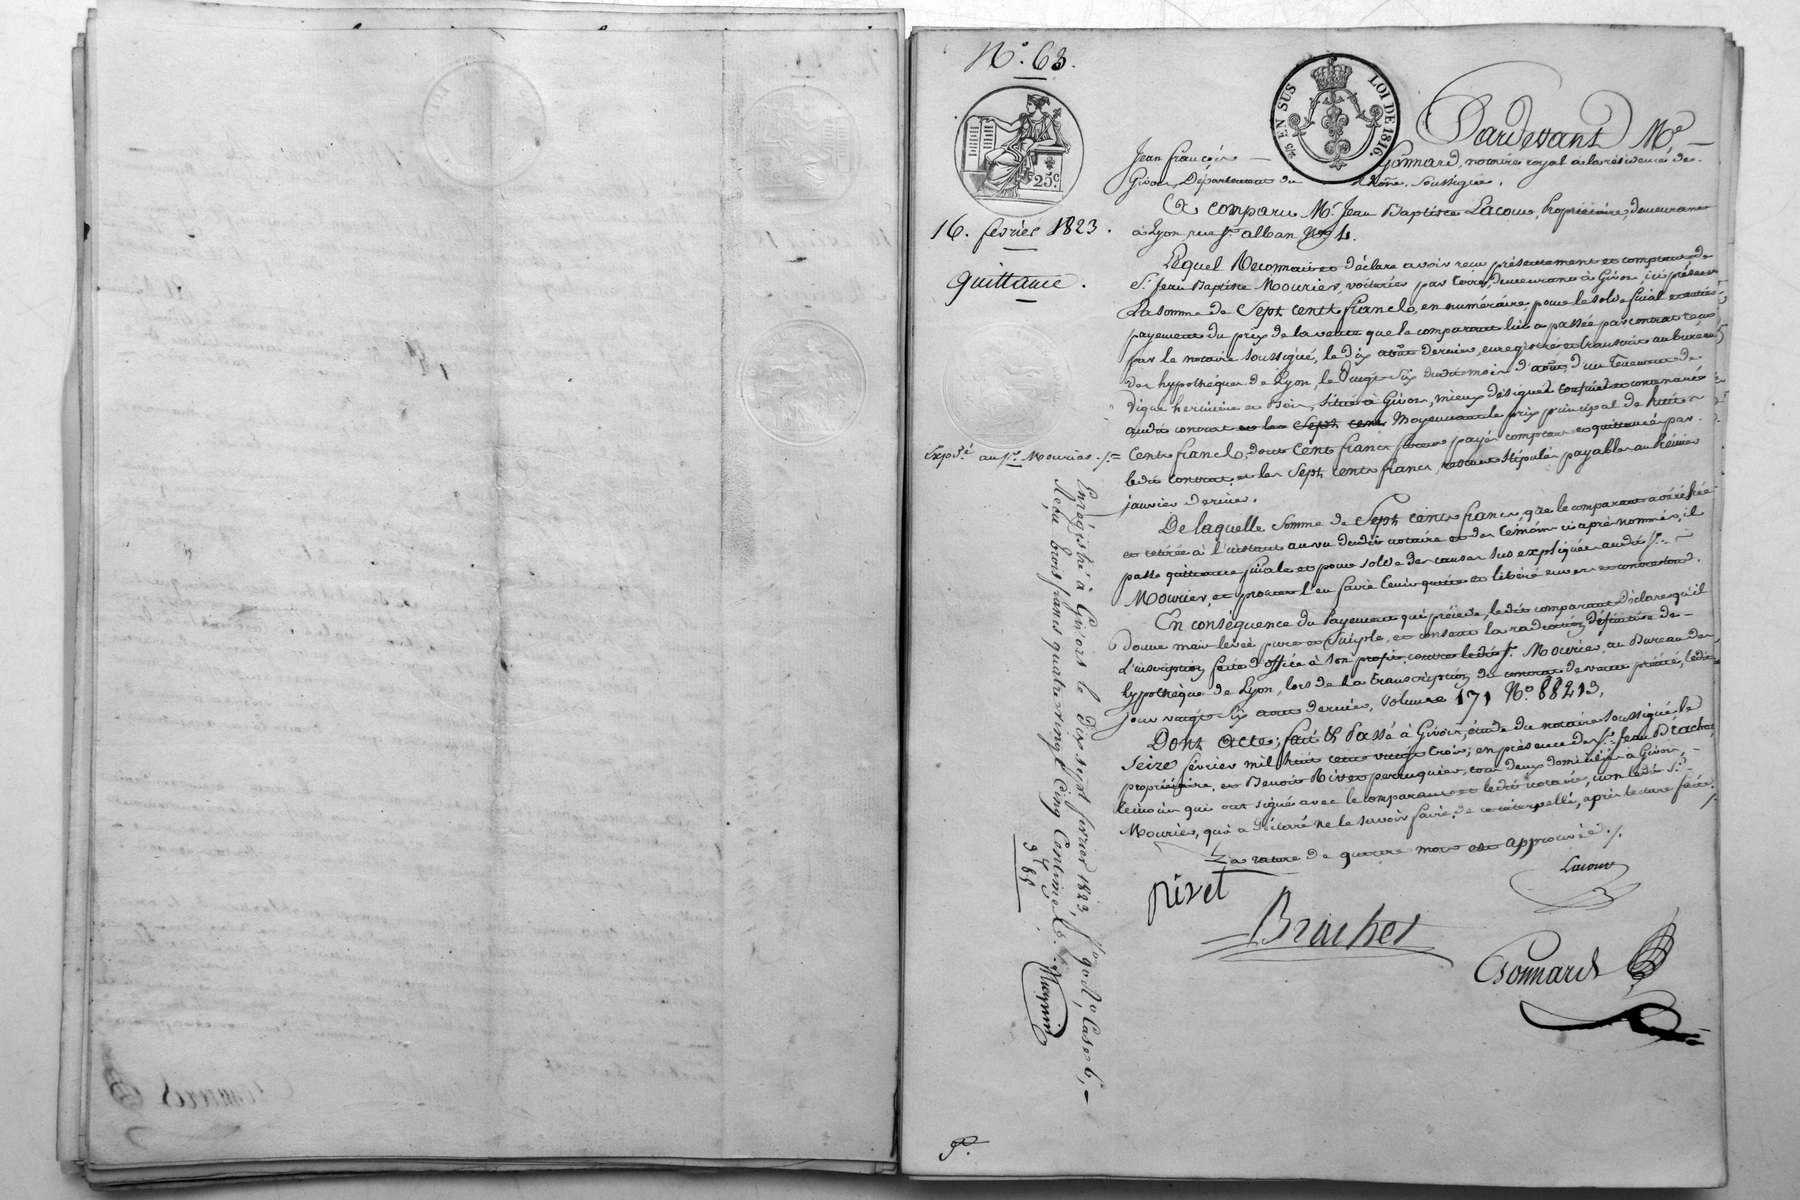 N.º 63.
EN SUS LOI DE 1816.
25.c
16. février 1823.
quittance.
Exp.é au s.r Mourier ./.
Pardevant M.e
Jean françois Gonnard, notaire royal à la résidence de
Givors, Département du Rhône, soussigné.
A comparu M.r Jean Baptiste Lacour, Propriétaire, demeurant
à Lyon rue s.t alban N.º 4.
Lequel Reconnait et déclare avoir reçu présentement et comptant de
S.r Jean Baptiste Mourier, voiturier par terre, demeurant à Givors, ici présent
La somme de Sept cents francs, en numéraire pour le solde final
payement du prix de la vente que le comparant lui a passée par contrat reçu
par le notaire soussigné, le dix août dernier, enregistré et transcrit au bureau
des hypothèques de Lyon, le vingt six dudit mois d'août, d'un tènement de
vigne herminie et Bois, situé à Givors, mieux désigné confiné et contenu
audit contrat et les Sept cent Moyennant le prix principal de huit
Cents francs, dont Cent francs furent payés comptant et quittancés par
ledit contrat, et les Sept cents francs restant stipulés payables au premier
janvier dernier.
De laquelle somme de Sept cents francs, que le comparant a vérifiée
et retirée à l'instant au vu dudit notaire et des témoins ci après nommés, il
passe quittance finale et pour solde des causes sus expliquées audit s.r
Mourier, et promet l'en faire tenir quitte et libéré envers et contre tous.
En conséquence du Payement qui précède, ledit comparant déclare qu'il
donne main levée pure et simple, et consent la radiation définitive de
l'inscription faite d'office à son profit, contre ledit s.r Mourier, au Bureau des
hypothèques de Lyon, lors de la transcription du contrat de vente précité, ledit
jour vingt six aout dernier, volume 171 N.º 88213.
Dont Acte, fait & Passé à Givors, étude du notaire soussigné le
Seize février mil huit cent vingt trois; en présence de s.rs Jean Brachet
propriétaire, et Benoit Rivet perruquier, tous deux domiciliés à Givors,
témoins qui ont signé avec le comparant et ledit notaire, non ledit S.r
Mourier, qui a déclaré ne le savoir faire, de ce interpellé, après lecture faite.
La rature de quatre mots est approuvée ./.
Lacour
Rivet
Brachet
Gonnard
Enrégistré à Givors le dix sept février 1823, f.º 9 v.º Case 6,
Reçu trois francs quatre vingt Cinq Centimes
3 85